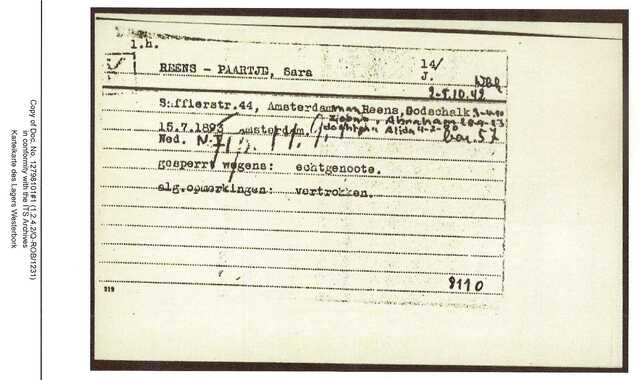 l.h.
REENS - PAARTJE, Sara 14/
J. WBK
2-5.10.42
Saffierstr.44, Amsterdam man Reens, Godschalk
Abraham 28-9-23
15.7.1893 Amsterdam. Alida 4-2-30
Ned. N.I. bar. 57
gesperrt wegens: echtgenoote.
alg.opmerkingen: vertrokken.
9110
919
Copy of Doc. No. 12798101#1 (1.2.4.2/Q-ROB/1231)
in conformity with the ITS Archives
Karteikarte des Lagers Westerbork